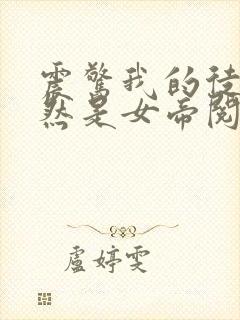 震驚我的徒
然是女帝閱
盧婷雯